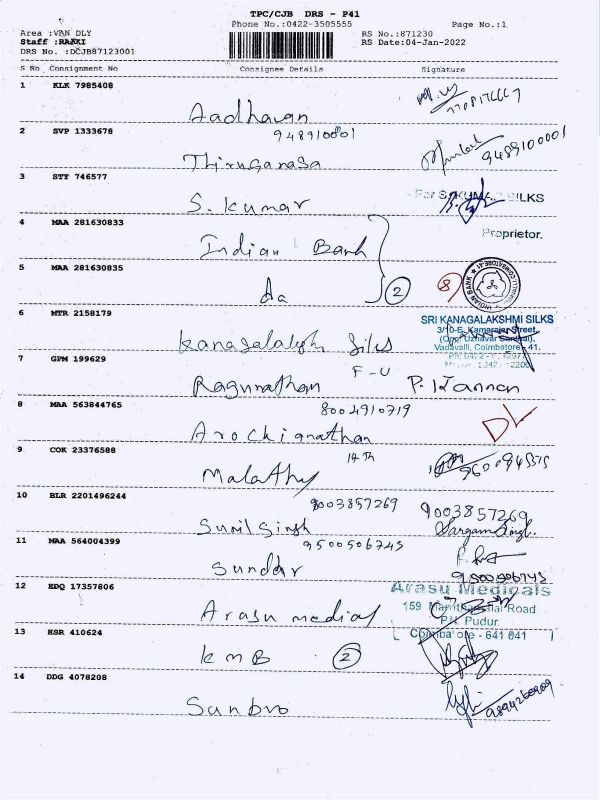 TPC/CJB DRS - P41
Phone No.:0422-3505555 Page No.:1
Area :VAN DLY
Staff :RANKI
RS No.:871230
DRS No. :DCJB87123001
RS Date:04-Jan-2022
S No Consignment No Consignee Details Signature
1 KLK 7985408
Aadhavan
2 SVP 1333678 948910001
Thiruganasa 9489100001
3 STY 746577
S. Kumar For S. KUMAR SILKS
Proprietor.
4 MAA 281630833
Indian Bank
5 MAA 281630835
do 2 8
INDIAN BANK
6 MTR 2158179
SRI KANAGALAKSHMI SILKS
3/10-E, Kamarajar Street,
(Opp. Uzhavar Santhai),
Vadavalli, Coimbatore - 41.
Kanagalakshmi Silks
7 GPM 199629 F-U
Ragunathan P. Kannan
8 MAA 563844765 8004910719
Arochianathan DL
9 COK 23376588 14th
Malathy
10 BLR 2201496244 9003857269 9003857269
Sunil Singh Sargam Singh.
11 MAA 564004399 9500506743
Sundar 9500506743
12 EDQ 17357806
Arasu Medicals
159 Road
P.N. Pudur.
Coimbatore - 641 041
Arasu medical
13 HSR 410624
KMB 2
14 DDG 4078208
Sunbro 9894260909